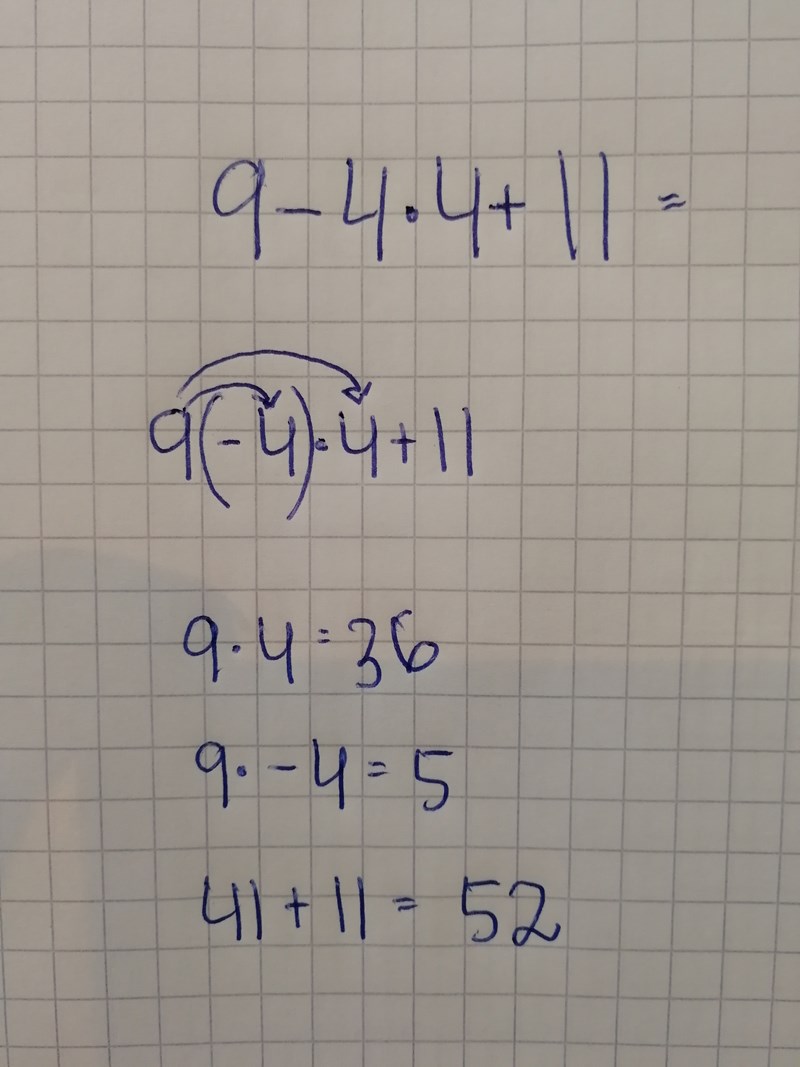 9-4·4+11=
9(-4)·4+11
9·4=36
9·-4=5
41+11=52